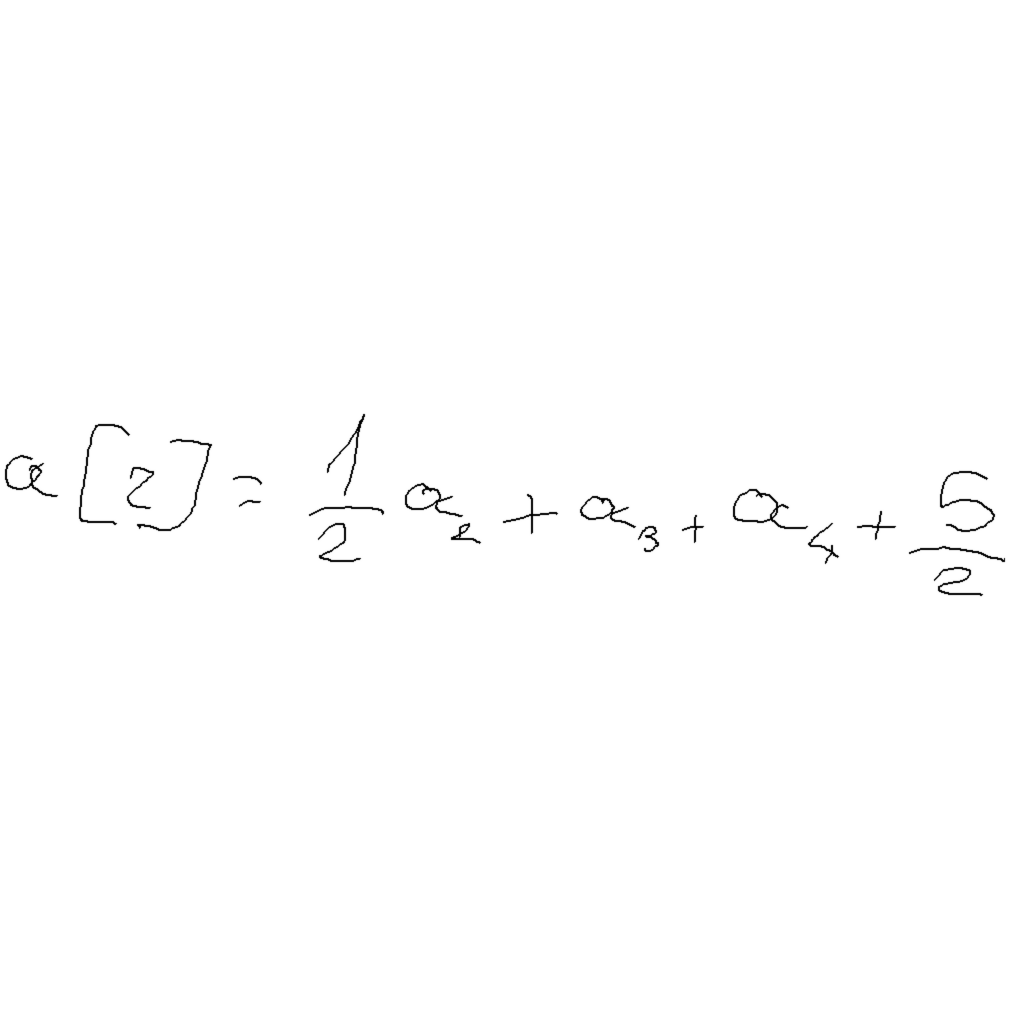 a[2] = \frac{1}{2} a_2 + a_3 + a_4 + \frac{5}{2}